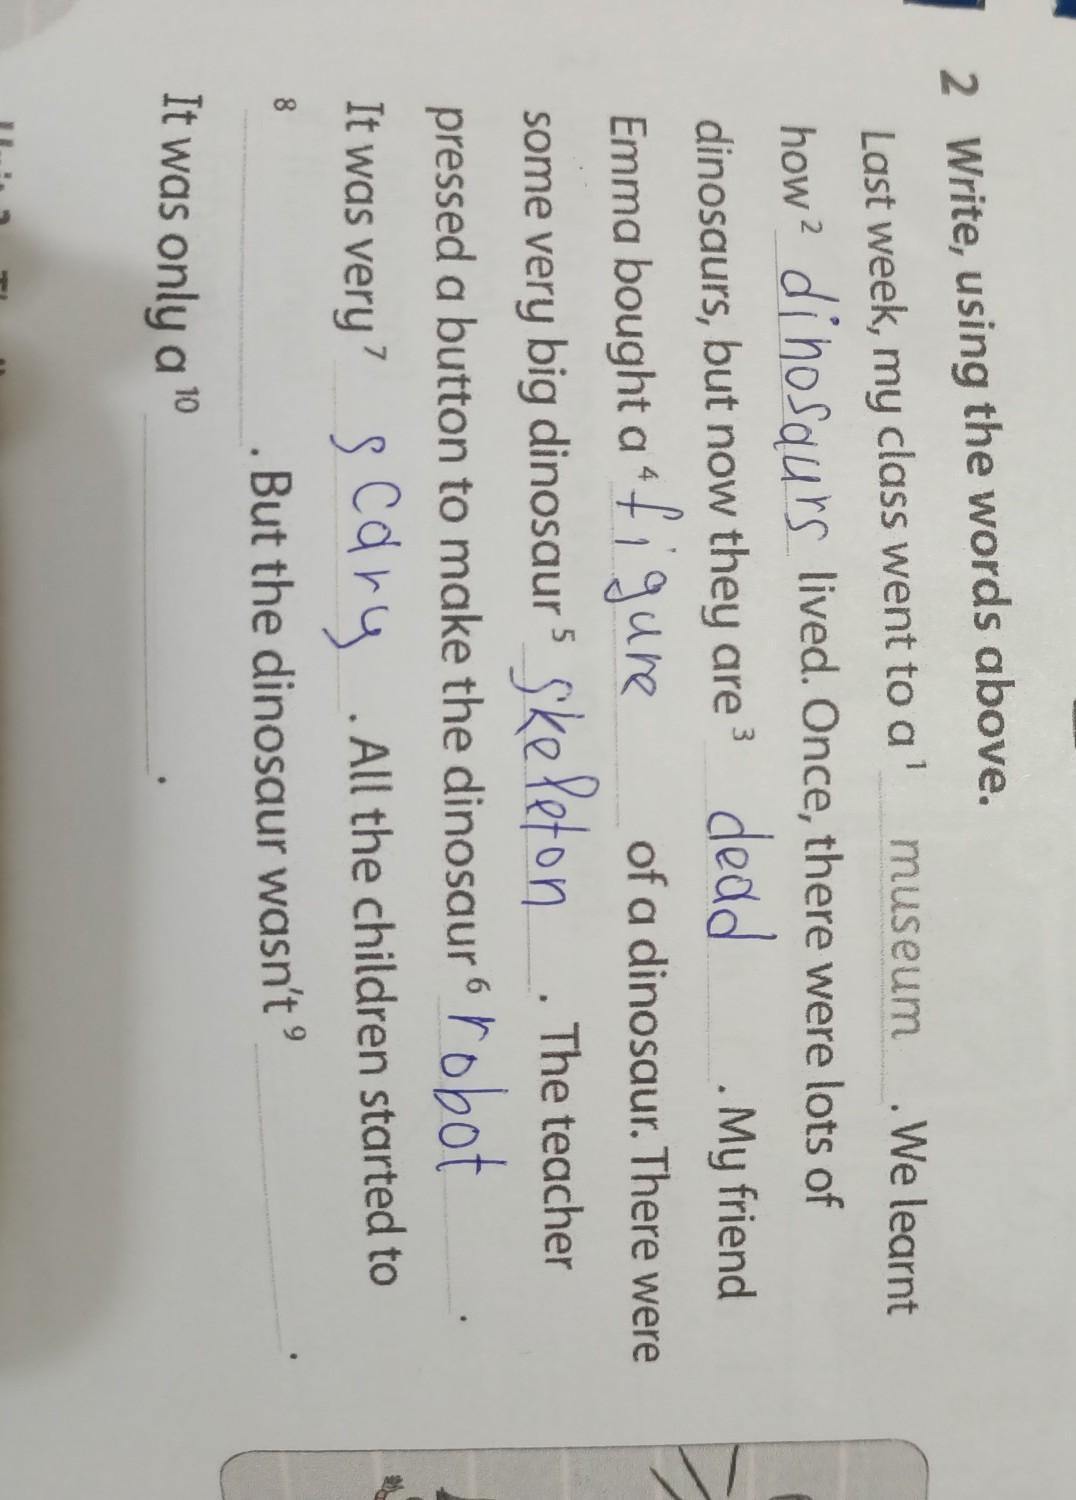 2 Write, using the words above.
Last week, my class went to a ¹ museum . We learnt
how ² dinosaurs lived. Once, there were lots of
dinosaurs, but now they are ³ dead . My friend
Emma bought a ⁴ figure of a dinosaur. There were
some very big dinosaur ⁵ skeleton . The teacher
pressed a button to make the dinosaur ⁶ robot .
It was very ⁷ scary . All the children started to
⁸ . But the dinosaur wasn't ⁹ .
It was only a ¹⁰ .